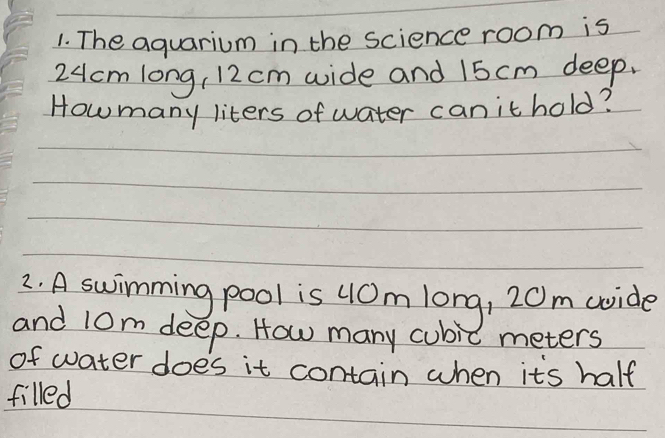 1. The aquarium in the science room is
24cm long, 12cm wide and 15cm deep.
How many liters of water can it hold?
2. A swimming pool is 40m long, 20m wide
and 10m deep. How many cubic meters
of water does it contain when it's half
filled